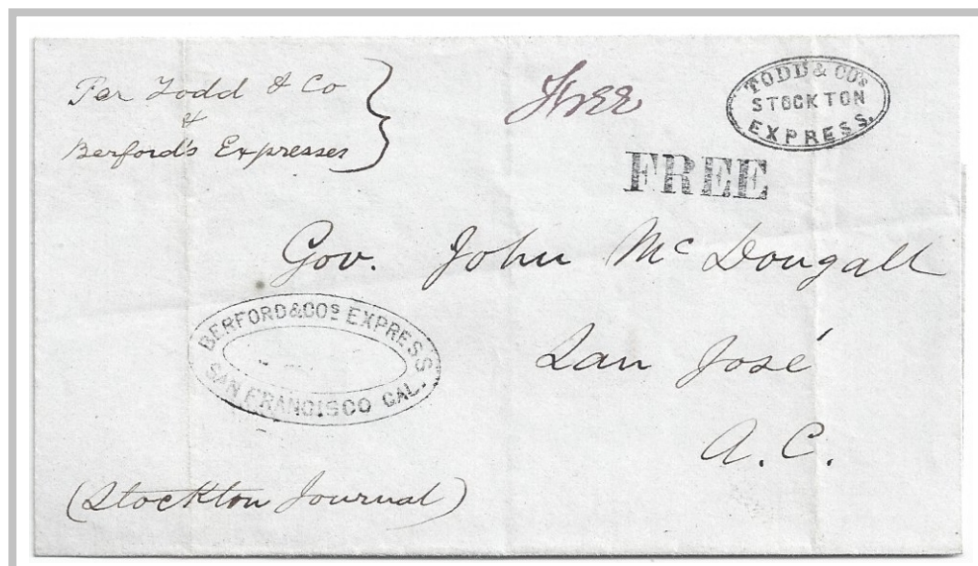 Per Todd & Co
&
Berford's Expresses
Free
TODD & CO'S
STOCKTON
EXPRESS.
FREE
Gov. John McDougall
San José
A. C.
BERFORD & CO'S EXPRESS
SAN FRANCISCO CAL.
(Stockton Journal)